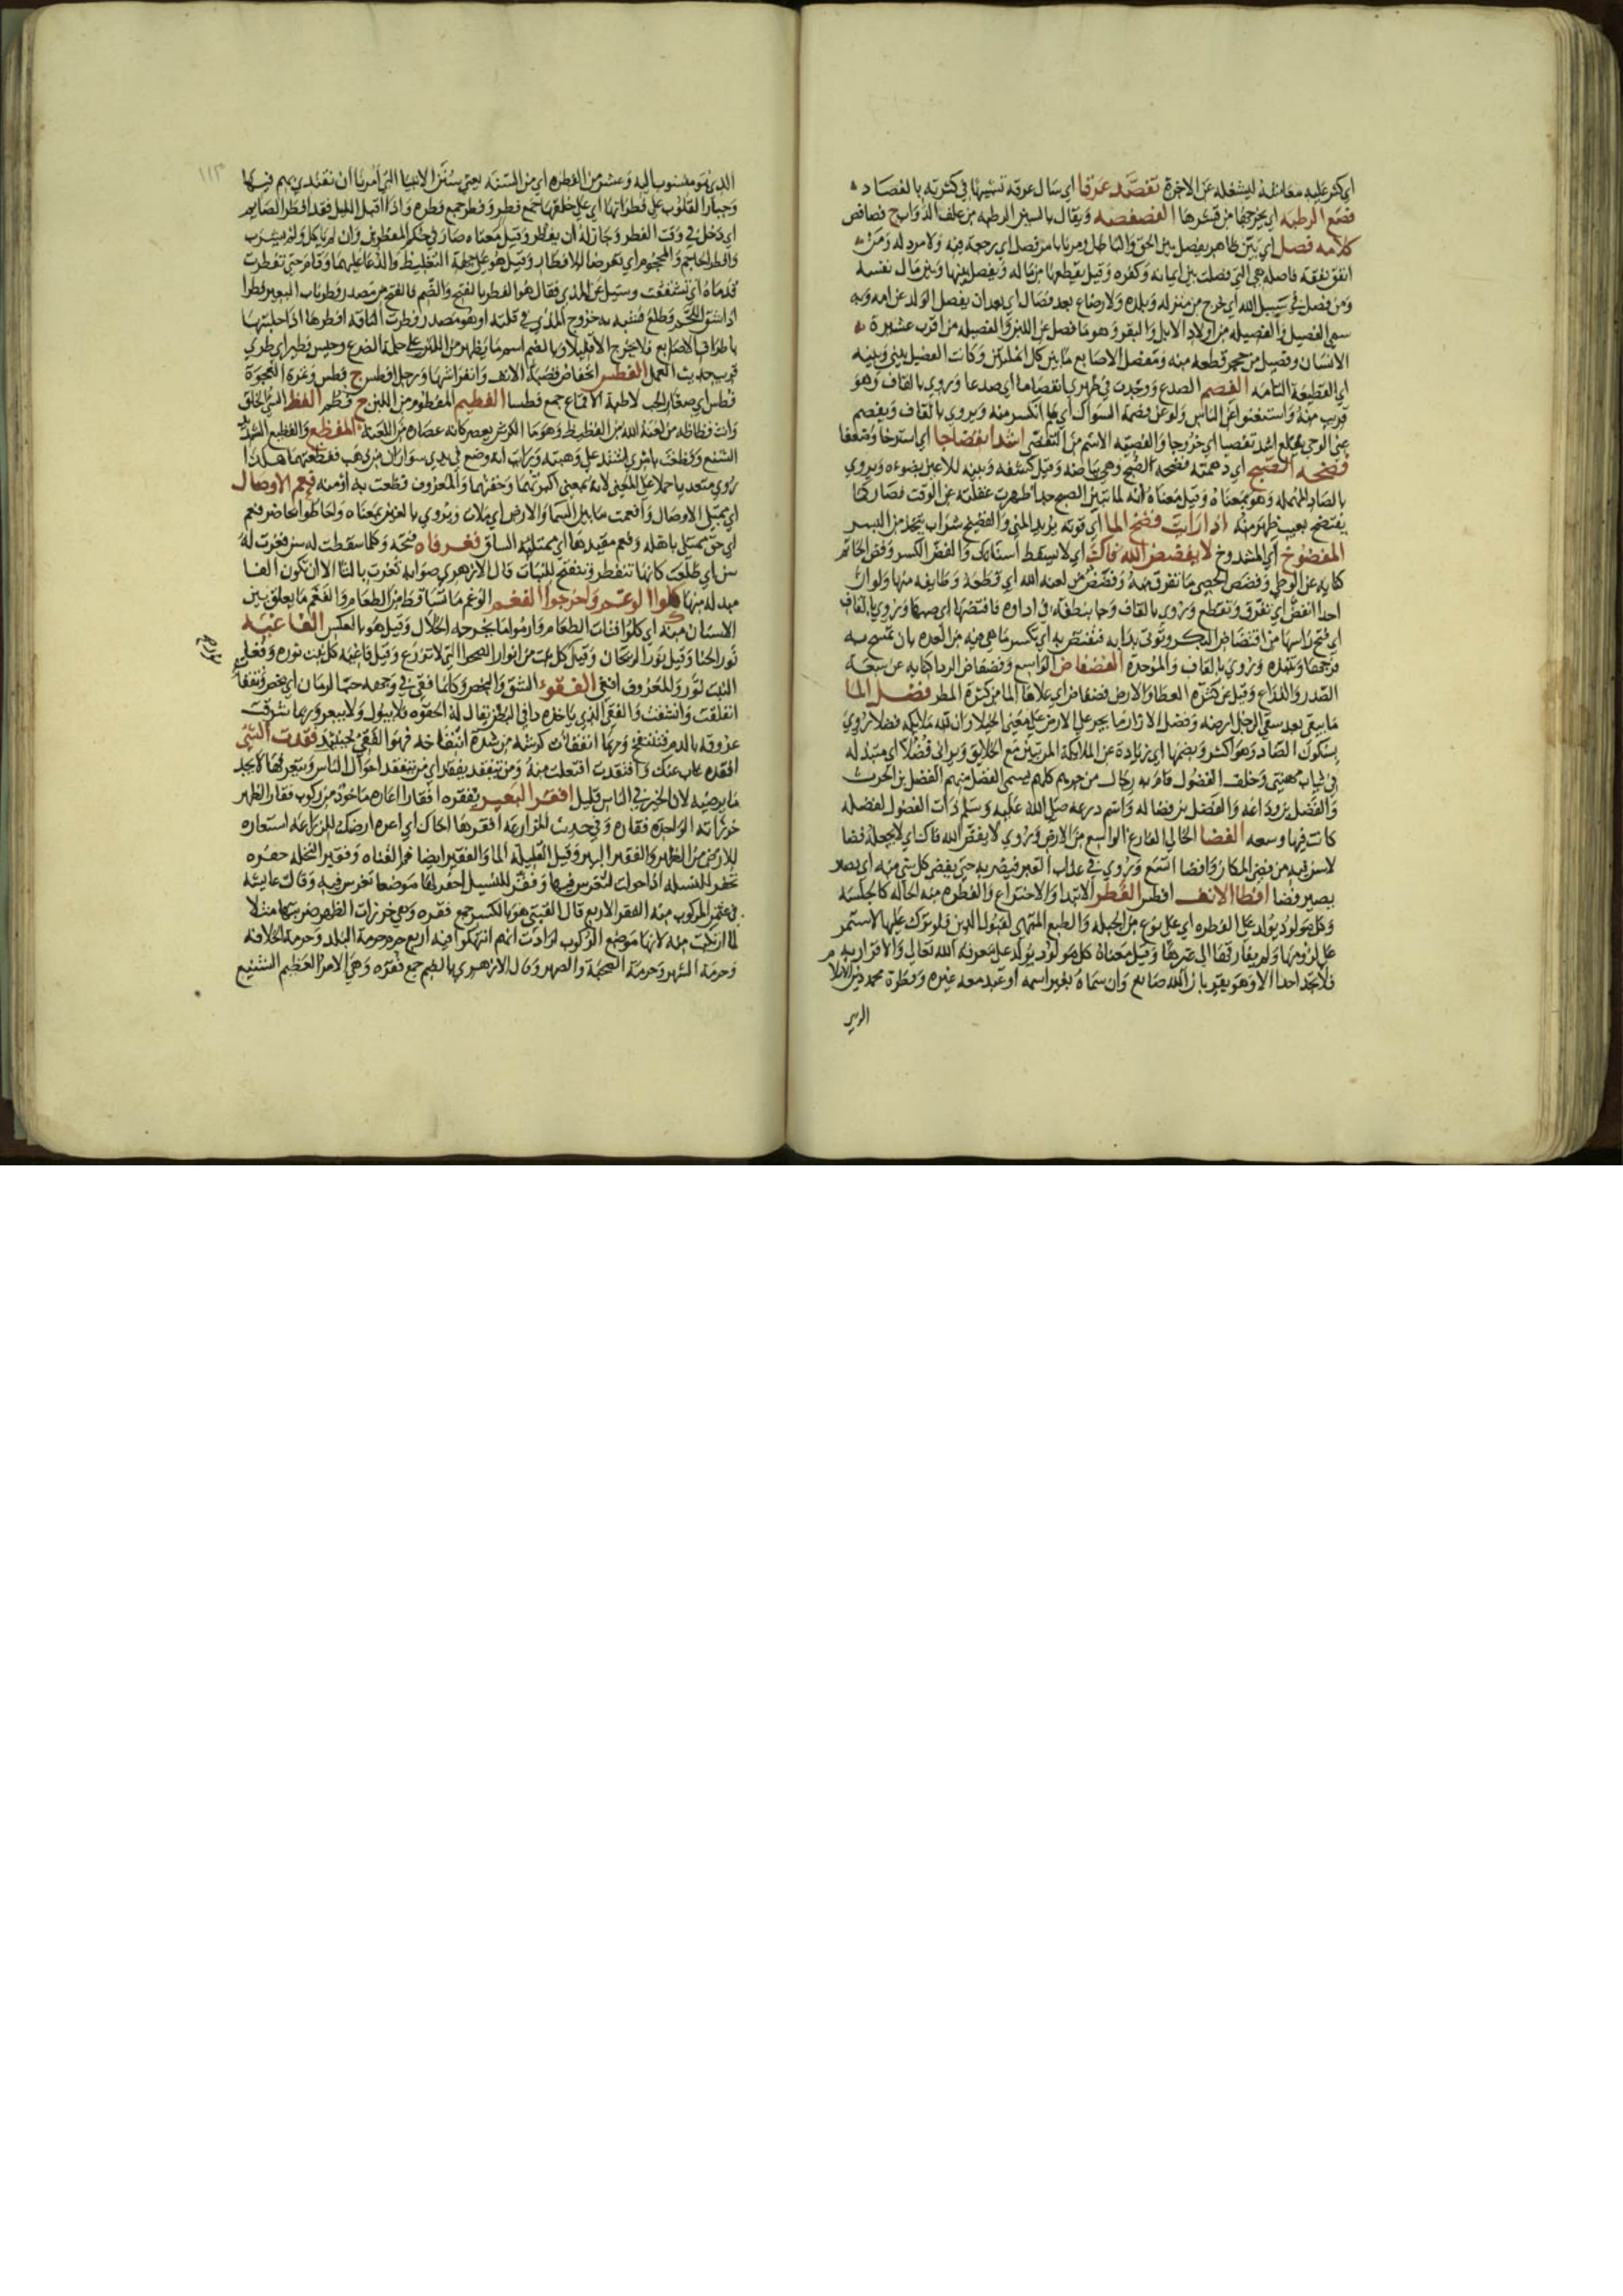 اي كثر عليه معاشه ليشغله عن الاخرة تفصد عرقا اي سال عرقه تشبيها في كثرته بالفصاد
فصع الرطبه اي يخرجها من قشرها الفصفصه ويقال بالسين الرطبه من علف الدواب ج فصافص
كلامه فصل اي بين ظاهر يفصل بين الحق والباطل ومر بابا من فصل اي رجعه فيه ولا مرد له ومن
انفق نفقة فاصله هي التي فصلت بين ايمانه وكفره وقيل يقطعها من ماله ويفصل بينها وبين مال نفسه
ومن فصل في سبيل الله اي خرج من منزله وبلده ولا رضاع بعد فصال اي بعد ان يفصل الولد عن امه وبه
سمي الفصيل والفصيله من اولاد الابل والبقر وهو ما فصل عن اللبن والفصيله من اقرب عشيرة
الانسان وفصيل من حجر قطعه منه ومفصل الاصابع ما بين كل انملتين وكانت الفصيل بيني وبينه
اي القطيعة التامه الفصم الصدع ووجدت في ظهري انفصاما اي صدعا وروي بالقاف وهو
قريب منه واستغنوا عن الناس ولو عن فصمة السواك اي ما انكسر منه ويروى بالقاف ويفصم
عني الوحي يقلع اشد تفصيا اي خروجا والفصيه الاسم من التفصي اشد انفضاجا اي استرخا وضعفا
فضحه الصبح اي دهمته فضحة الصبح وهي بياضه وقيل كشفه وبينه للاعين بضوءه ويروي
بالصاد المهمله وهو بمعناه وقيل معناه انه لما تبين الصبح جدا ظهرت غفلته عن الوقت فصار كما
يفتضح بعيب ظهر منه اذا رايت فضخ الما اي قوته يريد المني والفضيخ شراب يتخذ من البسر
المفضوخ اي المشدوخ لا يفضض الله فاك اي لا يسقط اسنانك والفض الكسر وفض الخاتم
كنايه عن الوطي وفضض الحصى ما تفرق منه وفضض من لعنه الله اي قطعه وطايفه منها ولو ان
احدا انفض اي تفرق وتقطع وروي بالقاف وجا بنطفة في اداوه فافتضها اي صبها وروي بالقاف
اي فتح راسها من اقتضاض البكر وتوتى بدابه فتفتض به اي تكسر ما هي فيه من العده بان تمسح به
فرجها وتنبذه وروي بالقاف والموحدة الفضفاض الواسع وفضفاض الردا كنايه عن سعة
الصدر والذراع وقيل عن كثرة العطا والارض فضفاض اي علاها الما من كثرة المطر فضل الما
ما يبقى بعد سقي الرجل ارضه وفضل الازار ما يجر على الارض على معنى الخيلا وان لله ملايكه فضلا روي
بسكون الضاد وهو اكثر وبضمها اي زيادة عن الملايكة المرتبين مع الخلايق ويراني فضلا اي مبتذله
في ثياب مهنتي وحلف الفضول قام به رجال من جرهم كلهم يسمى الفضل منهم الفضل بن الحرث
والفضل بن وداعه والفضل بن فضاله واسم درعه صلى الله عليه وسلم ذات الفضول لفضله
كانت فيها وسعه الفضا الخالي الفارغ الواسع من الارض وروي لا يفض الله فاك اي لا يجعله فضا
لا سن فيه من فضى المكان وافضا اتسع وروي في عذاب القبر فيضربه حتى يفضي كل شي منه اي يصير
يصير فضا افطا الانف افطر الفطر الابتدا والاختراع والفطره منه الحاله كالجلسه
وكل مولود يولد على الفطره اي على نوع من الجبله والطبع المتهيي لقبول الدين فلو ترك عليها لاستمر
على لزومها ولم يفارقها الى غيرها وقيل معناه كل مولود يولد على معرفة الله تعالى والاقرار به
فلا تجد احدا الا وهو يقر بان الله صانع وان سماه بغير اسمه او عبد معه غيره وفطرة محمد دين الاسلام
الذي
١١٣
الذي هو منسوب اليه وعشر من الفطره اي من السنه يعني سنن الانبيا التي امرنا ان نقتدي بهم فيها
وجبار القلوب على فطراتها اي على خلقها جمع فطر وفطر جمع فطره واذا اقبل الليل فقد افطر الصايم
اي دخل في وقت الفطر وجاز له ان يفطر وقيل معناه صار في حكم المفطرين وان لم ياكل ولم يشرب
وافطر الحاجم والمحجوم اي تعرضا للافطار وقيل هو على جهة التغليظ والدعا عليهما وقام حتى تفطرت
قدماه اي تشققت وسيل عن المذي فقال هو الفطر بالفتح والضم فالفتح من مصدر فطر ناب البعير فطرا
اذا شق اللحم وطلع فشبه به خروج المذي في قلته او هو مصدر فطرت الناقة افطرها اذا حلبتها
باطراف الاصابع فلا يخرج الا قليلا وبالضم اسم ما يظهر من اللبن على حلمة الضرع وحيس فطير اي طري
قريب حديث العمل الفطس انخفاض قصبة الانف وانفراشها ورجل افطس ج فطس وغره العجوة
فطس اي صغار الحب لاطية الاقماع جمع فطسا الفطيم المفطوم من اللبن ج فطم الفظ السي الخلق
وانت فظاظه من لعنة الله من الفظيظ وهو ما الكرش يعصر كانه عصاره من اللعنة المفظع والفظيع الشديد
الشنيع وفظعت بامري اشتد علي وهبته ورايت انه وضع في يدي سواران من ذهب ففظعتهما هكذا
روي متعديا حملا على المعنى لانه بمعنى اكبرتهما وخفتهما والمعروف فظعت به او منه فعم الاوصال
اي ممتلي الاوصال وافعمت ما بين السما والارض اي ملات ويروي بالغين بمعناه واحاطوا بحاضر فعم
اي حي ممتلي باهله وفعم مقيدها اي ممتليه الساق فغر فاه فتحه وكلما سقطت له سن فغرت له
سن اي طلعت كانها تنفطر وتنفتح للنبات قال الازهري صوابه ثغرت بالثا الا ان تكون الفا
مبدله منها كلوا الوغم واخرجوا الفغم الوغم ما تساقط من الطعام والفغم ما يعلق بين
الاسنان منه اي كلوا فتات الطعام وارموا ما يخرجه الخلال وقيل هو بالعكس الفاغيه
نور الحنا وقيل نور الريحان وقيل كل نبت من انوار الصحرا التي لا تزرع وقيل فاغيه كل نبت نوره وفغا
النبت نور والمعروف افغى الفقوء الشق والبخص وكانما فقئ في وجهه حب الرمان اي بخص وتفقا
انفلقت وانشقت والفقئ الذي ياخذه دا في البطن يقال له الحقوه فلا يبول ولا يبعر وربما شرقت
عروقه بالدم فتنتفخ وربما انفقات كرشه من شدة انتفاخه فهو الفقئ حينئذ فقدت الشي
افقده غاب عنك وافتقدت افتعلت منه ومن يتفقد يفقد اي من يتفقد احوال الناس ويتعرفها لا يجد
ما يرضيه لان الخير في الناس قليل افقر البعير يفقره افقارا اعاره ماخوذ من ركوب فقار الظهر
خرزاته الواحده فقاره وفي حديث المزارعه افقرها اخاك اي اعره ارضك للزراعه استعاره
للارض من الظهر والفقير البير وقيل القليلة الما والفقير ايضا فم القناه وفقير النخله حفره
تحفر للفسيله اذا حولت لتغرس فيها وفقر للفسيل احفر لها موضعا تغرس فيه وقالت عايشه
في عثمن المركوب منه الفقر الاربع قال القتبي هو بالكسر جمع فقره وهي خرزات الظهر ضربتها مثلا
لما ارتكب منه لانها موضع الركوب ارادت انهم انتهكوا فيه اربع حرم حرمة البلد وحرمة الخلافه
وحرمة الشهر وحرمة الصحبة والصهر وقال الازهري بالضم جمع فقره وهي الامر العظيم الشنيع